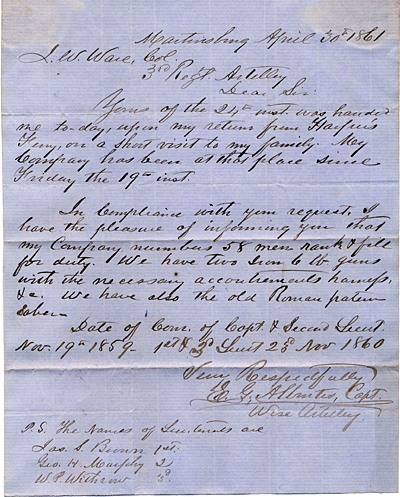 Martinsburg April 30th 1861
J. W. Ware, Col.
3rd Regt Artilley
Dear Sir:
Yours of the 24th inst. was handed
me to-day, upon my return from Harpers
Ferry, on a short visit to my family. My
Company has been at that place since
Friday the 19th inst.
In Compliance with your request, I
have the pleasure of informing you that
my Company numbers 58 men rank & file
for duty. We have two Iron 6 lb guns
with the necessary accoutrements harness,
&c. We have also the old Roman pattern
Sabers
Date of Com. of Capt. & Second Lieut.
Nov. 19th 1859 - 1st & 3d Lieut 23d Nov 1860
Your Respectfully
E. G. Alburtis, Capt.
Wise Artilley
P. S. The Names of Lieutenants are
Jas. S. Brown 1st.
Geo. H. Murphy 2
W. P. Withrow 3d